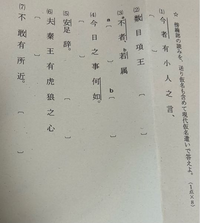 ☆ 傍線部の読みを、送り仮名も含めて現代仮名遣いで答えよ。(1点×8)
⑴ 今者有小人之言。 ( )
⑵ 数目項王 ( )
⑶ a不者、b若属 a( ) b( )
⑷ 今日之事何如。 ( )
⑸ 安足辞。 ( )
⑹ 夫秦王有虎狼之心 ( )
⑺ 不敢有所近。